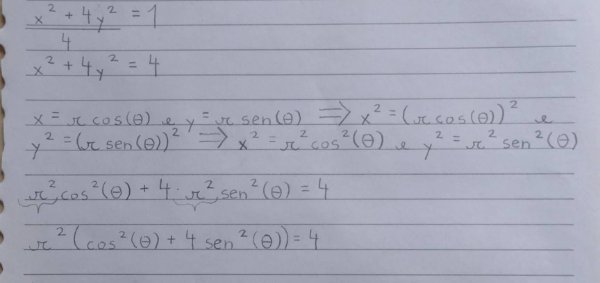 x² + 4y² = 1
4
x² + 4y² = 4
x = r cos(θ) e y = r sen(θ) ⟹ x² = (r cos(θ))² e
y² = (r sen(θ))² ⟹ x² = r² cos²(θ) e y² = r² sen²(θ)
r² cos²(θ) + 4 · r² sen²(θ) = 4
r² (cos²(θ) + 4 sen²(θ)) = 4